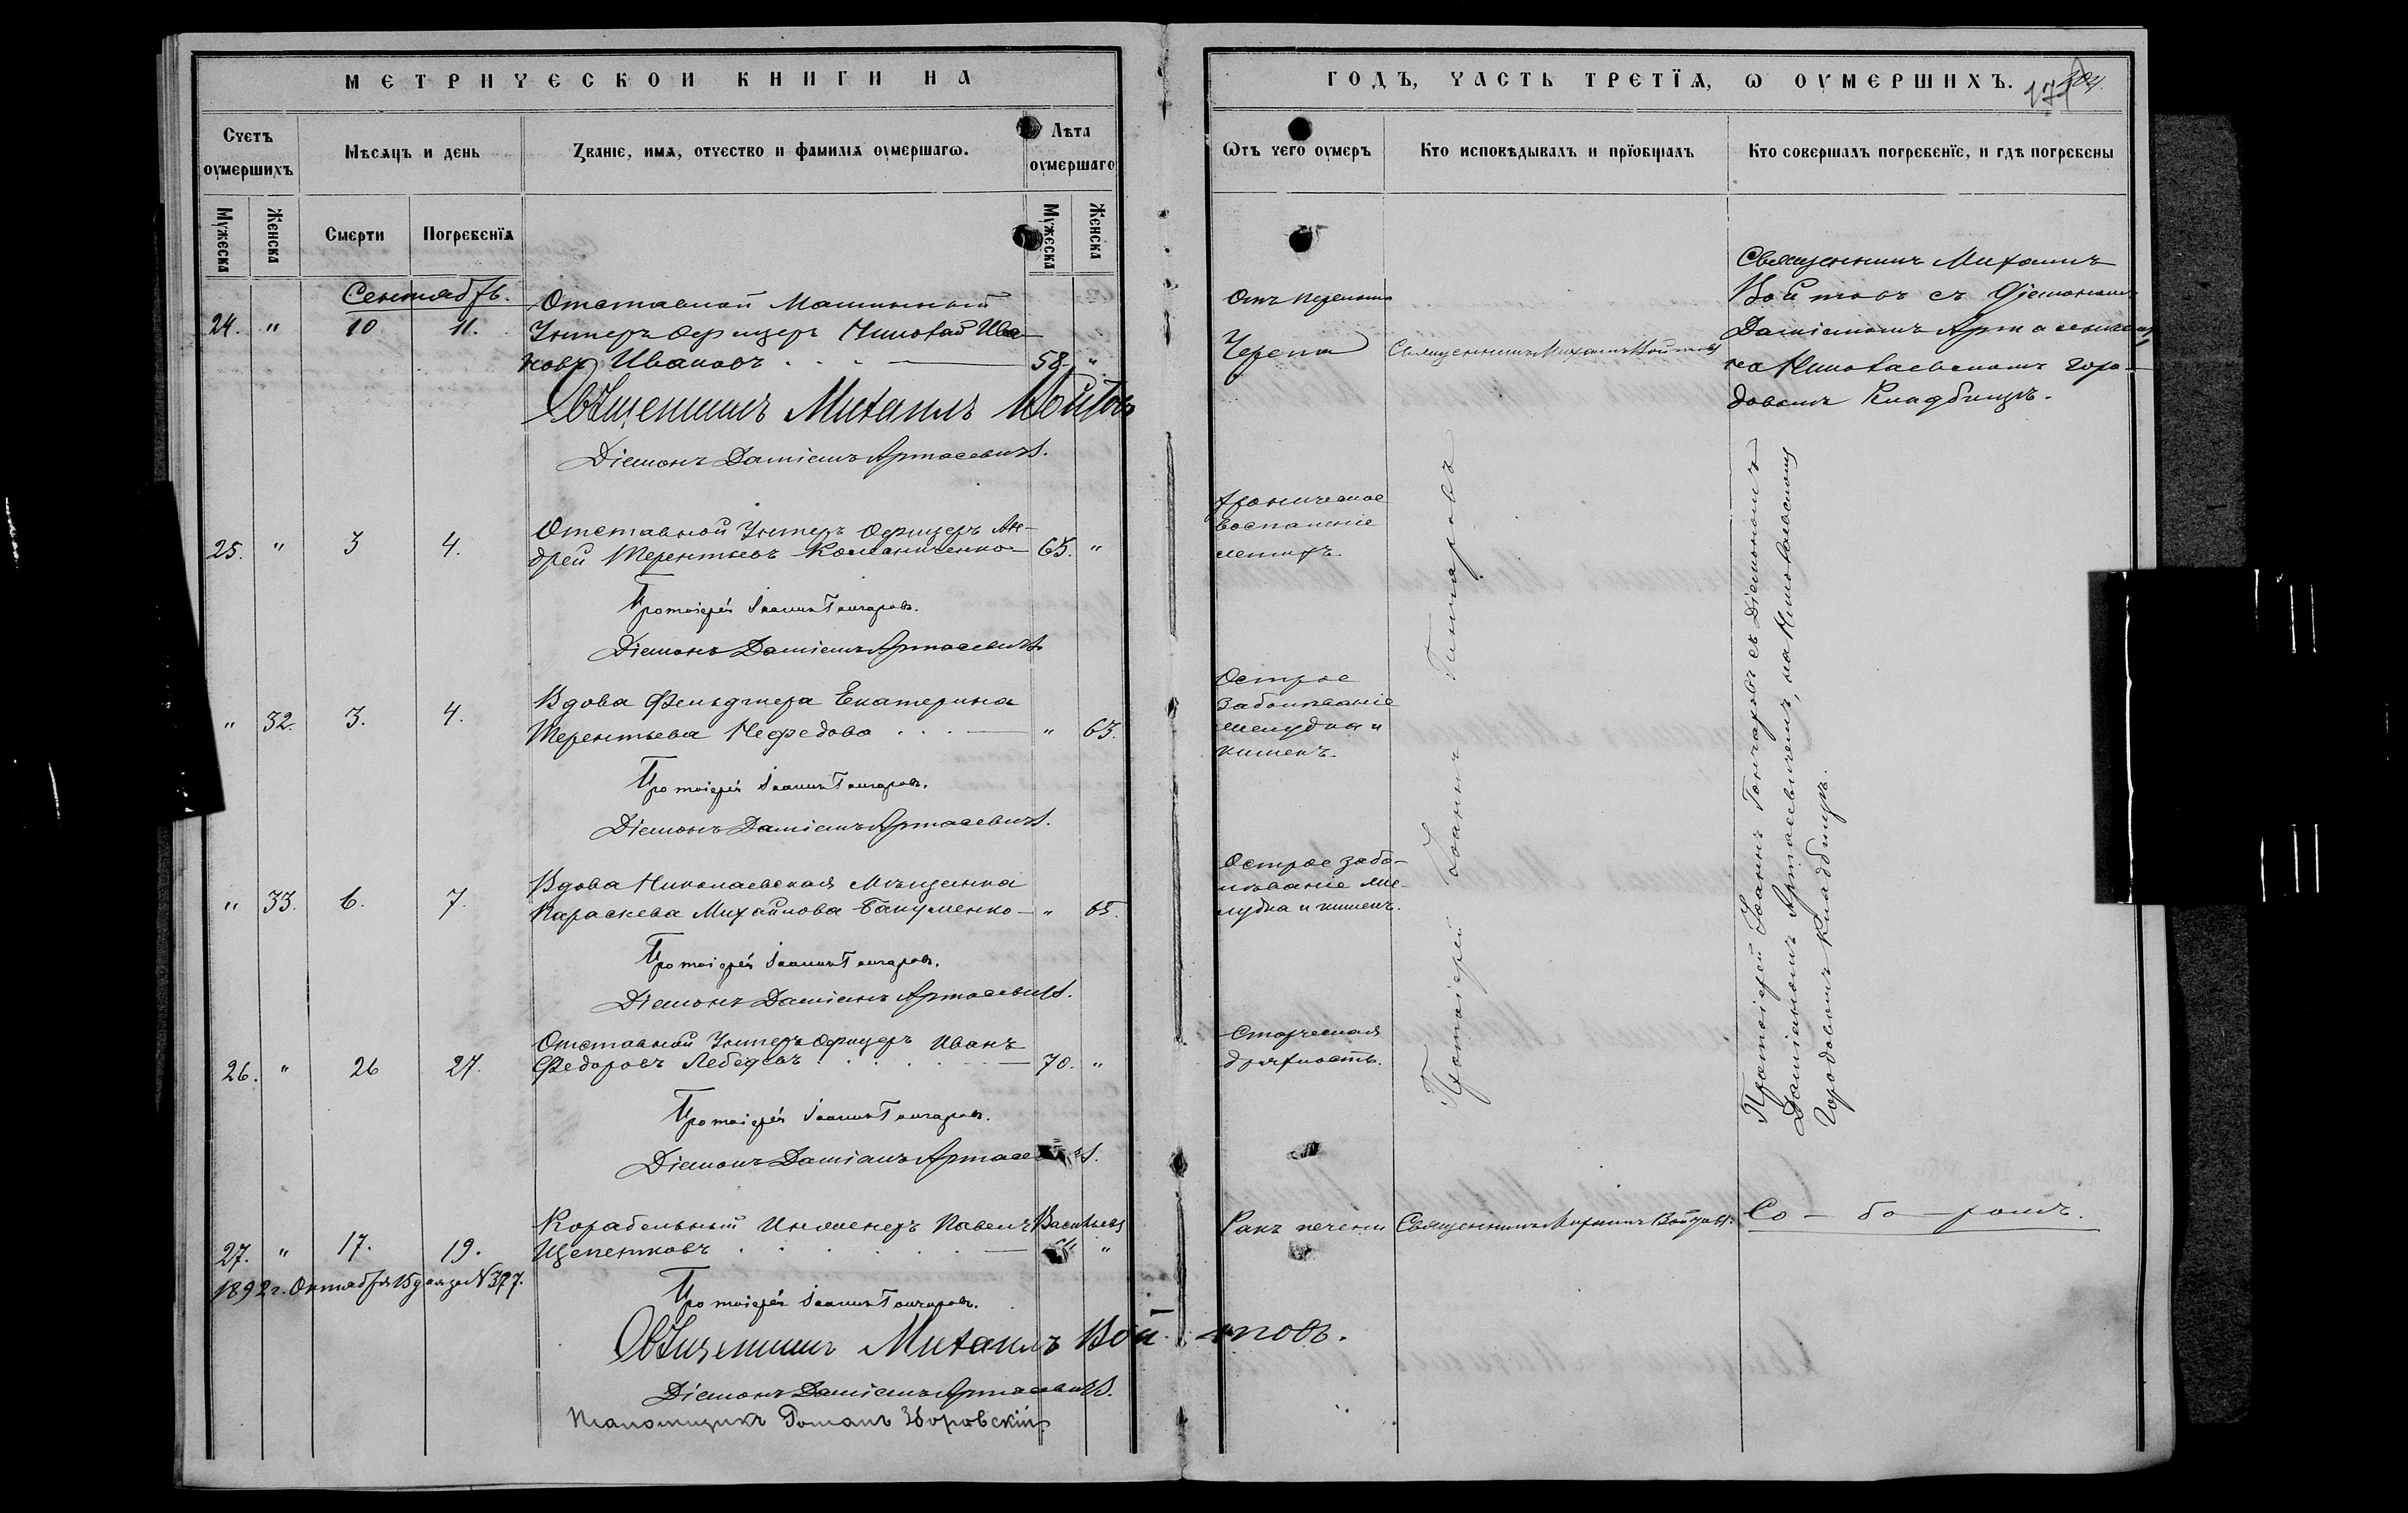 МЕТРИЧЕСКОЙ КНИГИ НА
Счетъ оумершихъ
Мѣсяцъ и день
Званіе, имя, отчество и фамилія оумершагω.
Лѣта оумершаго
Мужеска
Женска
Смерти
Погребенїя
Мужеска
Женска
Сентябрь.
24. " 10 11.
Отставной Машинный
Унтеръ Офицеръ Николай Ива-
новъ Ивановъ 58 "
Священникъ Михаилъ Войтовъ
Діаконъ Даміанъ Артасевичъ.
25. " 3 4.
Отставной Унтеръ Офицеръ Ан-
дрей Терентьевъ Команиченко 65. "
Протоіерей Іоаннъ Гончаровъ.
Діаконъ Даміанъ Артасевичъ.
" 32. 3. 4.
Вдова Фельдшера Екатерина
Терентьева Нефедова " 63.
Протоіерей Іоаннъ Гончаровъ.
Діаконъ Даміанъ Артасевичъ.
" 33. 6. 7.
Вдова Николаевская мѣщанка
Параскева Михайлова Бакуменко " 65.
Протоіерей Іоаннъ Гончаровъ.
Діаконъ Даміанъ Артасевичъ.
26. " 26 27.
Отставной Унтеръ Офицеръ Иванъ
Федоровъ Лебедевъ 70. "
Протоіерей Іоаннъ Гончаровъ.
Діаконъ Даміанъ Артасевичъ.
27. " 17. 19.
Корабельный Инженеръ Павелъ Васильевъ
Щепетковъ "
1892 г. Октября 15 дня за № 377.
Протоіерей Іоаннъ Гончаровъ.
Священникъ Михаилъ Войтовъ.
Діаконъ Даміанъ Артасевичъ.
Псаломщикъ Романъ Зборовскій.
ГОДЪ, ЧАСТЬ ТРЕТЇЯ, Ѡ ОУМЕРШИХЪ.
Ѿтъ чего оумеръ
Кто исповѣдывалъ и прїобщалъ
Кто совершалъ погребенїе, и гдѣ погребены
Отъ перелома
Черепа
Священникъ Михаилъ Войтовъ
Священникъ Михаилъ
Войтовъ съ Діакономъ
Даміаномъ Артасевичемъ
на Николаевскомъ горо-
довомъ Кладбищѣ.
Хроническое
воспаленіе
легкихъ.
Острое
Заболѣваніе
желудка и
кишекъ.
Острое забо-
лѣваніе же-
лудка и кишекъ.
Старческая
дряхлость.
Протоіерей Іоаннъ Гончаровъ
Протоіерей Іоаннъ Гончаровъ съ Діакономъ
Даміаномъ Артасевичемъ, на Николаевскомъ
Городовомъ Кладбищѣ.
Ракъ печени
Священникъ Михаилъ Войтовъ.
Со - бо - ромъ.